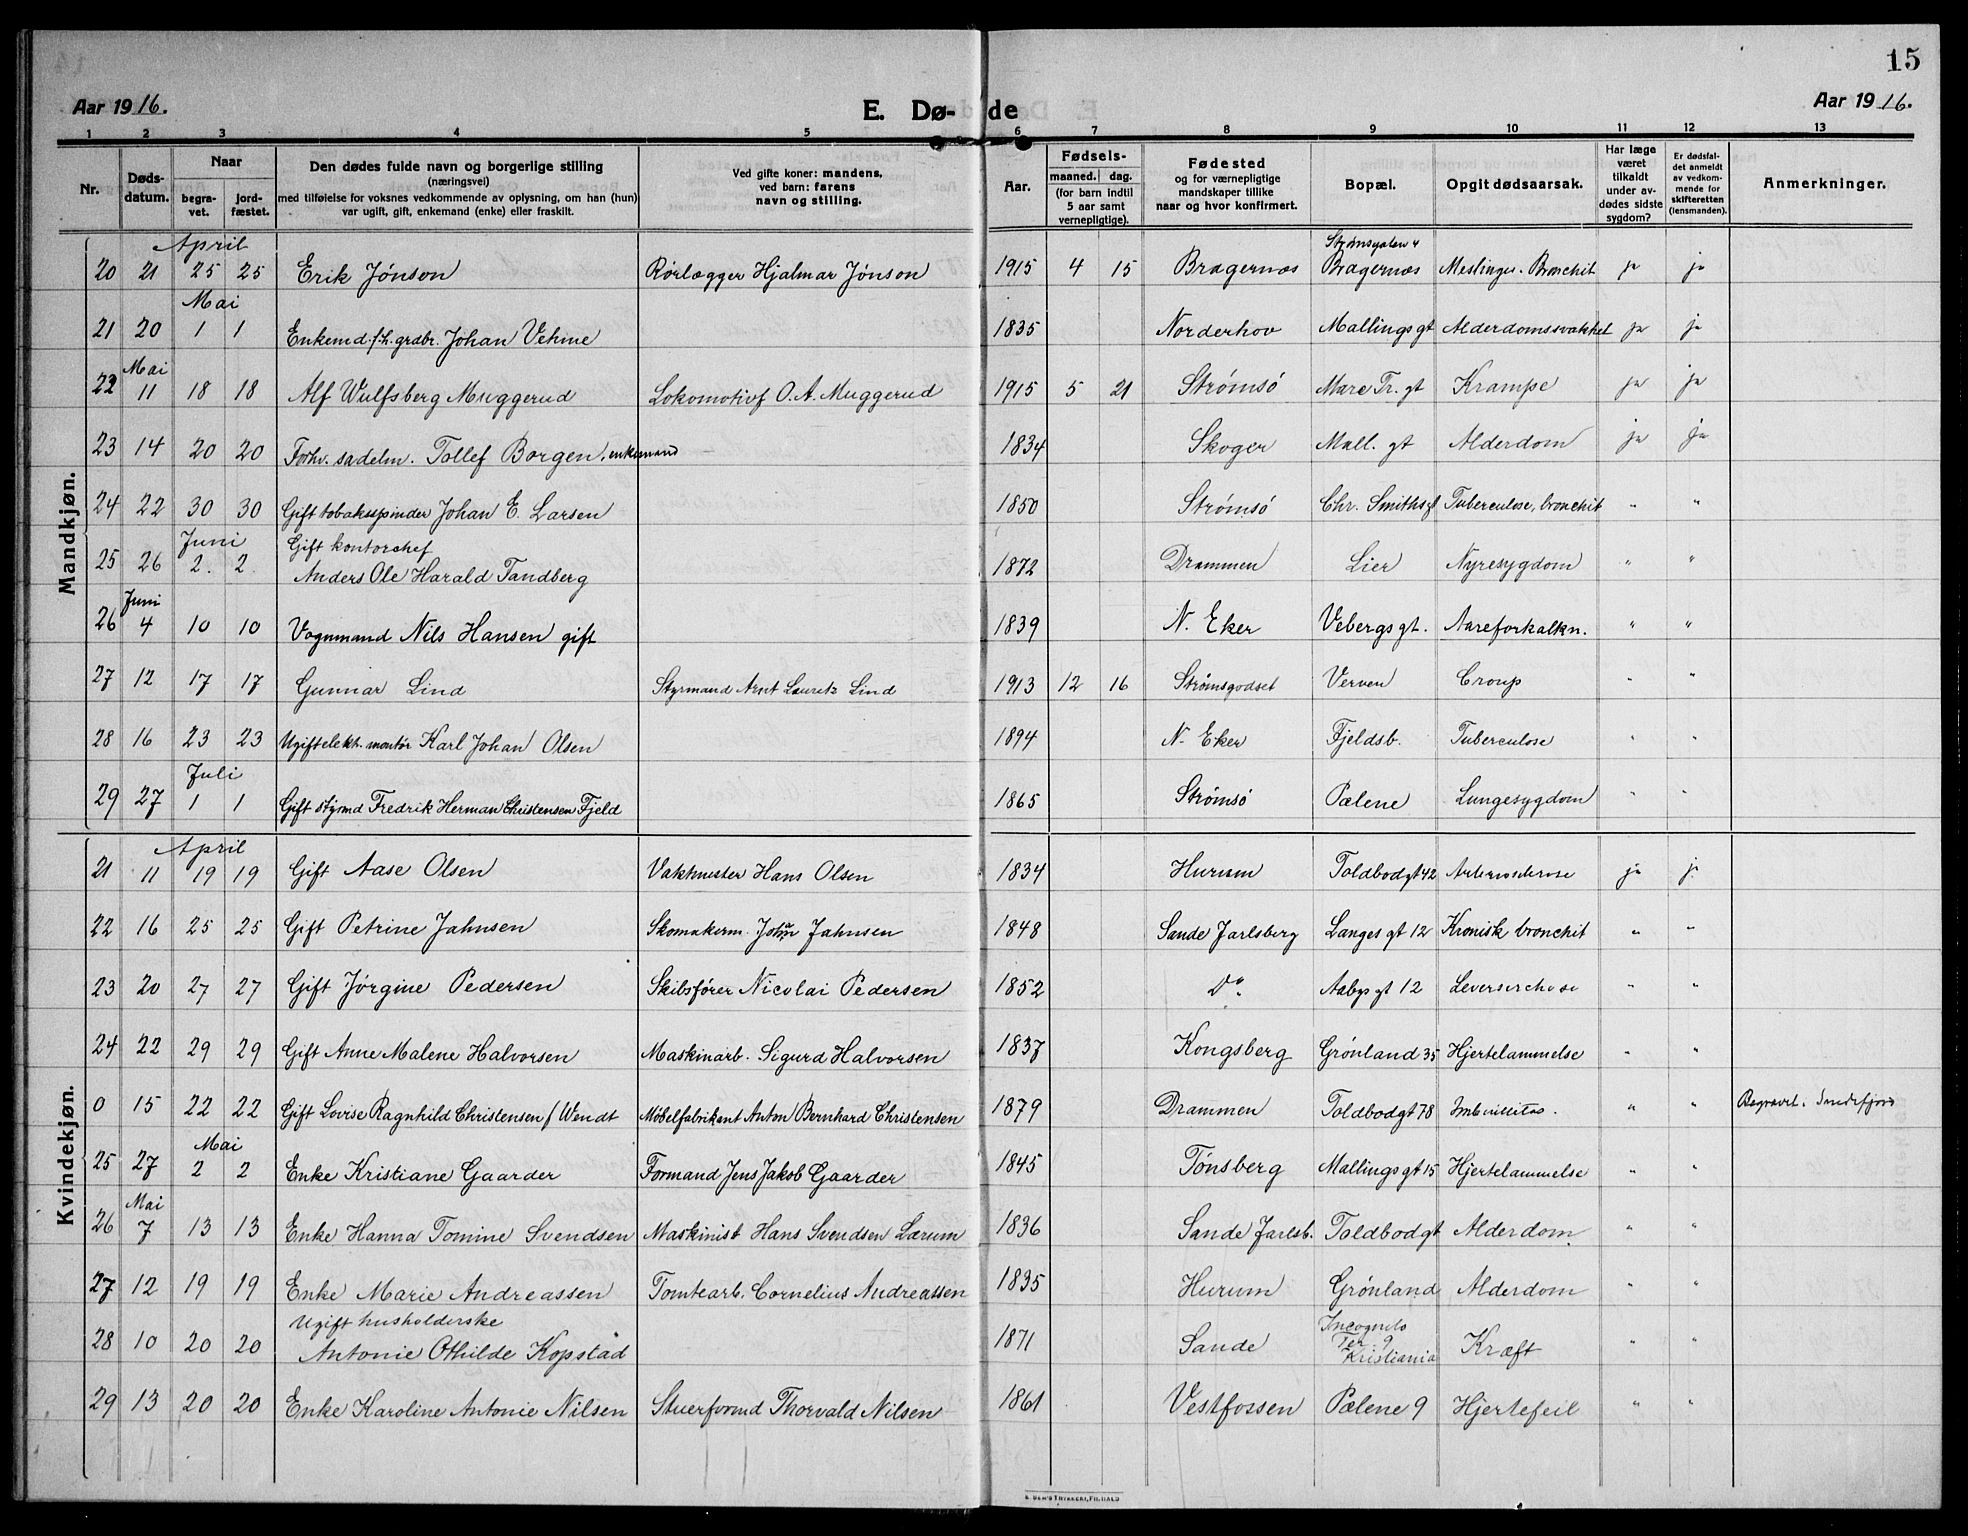 15
Aar 1916. E. Dø- de Aar 1916.
1 2 3 4 5 6 7 8 9 10 11 12 13
Nr.
Døds-
datum.
Naar
begra-
vet.
jord-
fæstet.
Den dødes fulde navn og borgerlige stilling
(næringsvei)
med tilføielse for voksnes vedkommende av oplysning, om han (hun)
var ugift, gift, enkemand (enke) eller fraskilt.
Ved gifte koner: mandens,
ved barn: farens
navn og stilling.
Aar.
Fødsels-
maaned. dag.
(for barn indtil
5 aar samt
vernepligtige).
Fødested
og for værnepligtige
mandskaper tillike
naar og hvor konfirmert.
Bopæl.
Opgit dødsaarsak.
Har læge
været
tilkaldt
under av-
dødes sidste
sygdom?
Er dødsfal-
det anmeldt
av vedkom-
mende for
skifteretten
(lensmanden).
Anmerkninger.
Mandkjøn.
April Strømsgaten 4
20 21 25 25 Erik Jónson Rørlægger Hjalmar Jónson 1915 4 15 Bragernæs Bragernæs Meslinger. Bronchit ja ja
Mai
21 20 1 1 Enkemd. f.h. grdbr. Johan Vehme 1835 Norderhov Mallings gt Alderdomssvakhet ja ja
Mai
22 11 18 18 Alf Wulfsberg Muggerud Lokomotivf O. A. Muggerud 1915 5 21 Strømsó Mare Tr. gt Krampe ja ja
23 14 20 20 Forhv. sadelm. Tollef Borgen, enkemand 1834 Skoger Mall. gt Alderdom ja ja
24 22 30 30 Gift tobaksspinder Johan E. Larsen 1850 Strómsó Chr. Smiths gt Tuberculose, bronchit " "
Juni Gift kontorchef
25 26 2. 2. Anders Ole Harald Tandberg 1872 Drammen Lier Nyresygdom " "
Juni
26 4 10 10 Vognmand Nils Hansen gift 1839 N. Eker Vebergs gt. Aareforkalkn. " "
27 12 17 17 Gunnar Lind Styrmand Arnt Lauritz Lind 1913 12 16 Strómsgodset Verven Croup " "
28 16 23 23 Ugift elekt. montør Karl Johan Olsen 1894 N. Eker Fjeldsb. Tuberculose " "
Juli
29 27 1 1 Gift styrmd Fredrik Herman Christensen Fjeld 1865 Strómsó Pælene Lungesygdom " "
Kvindekjøn.
April
21 11 19 19 Gift Aase Olsen Vaktmester Hans Olsen 1834 Hurum Toldbodgt 42 Arteriosclerose ja ja
22 16 25 25 Gift Petrine Jahnsen Skomakerm. Johan Jahnsen 1848 Sande Jarlsberg Langes gt 12 Kronisk bronchit " "
23 20 27 27 Gift Jórgine Pedersen Skibsfører Nicolai Pedersen 1852 Do Aabys gt 12 " "
24 22 29 29 Gift Anne Malene Halvorsen Maskinarb. Sigurd Halvorsen 1837 Kongsberg Grónland 35 Hjertelammelse " "
0 15 22 22 Gift Lovise Ragnhild Christensen f Wendt Møbelfabrikant Anton Bernhard Christensen 1879 Drammen Toldbodgt 78 Imbecillitas. " " Begravet i Sandefjord
Mai
25 27 2 2 Enke Kristiane Gaarder Formand Jens Jakob Gaarder 1845 Tónsberg Mallings gt 15 Hjertelammelse " "
Mai
26 7 13 13 Enke Hanna Tomine Svendsen Maskinist Hans Svendsen Lærum 1836 Sande Jarlsb. Toldbodgt Alderdom. " "
27 12 19 19 Enke Marie Andreassen Tomtearb. Cornelius Andreassen 1835 Hurum Grónland Alderdom " "
Ugift husholderske Incognito
28 10 20 20 Antonie Othilde Kopstad 1871 Sande Ter 9 Kristiania Kræft " "
29 13 20 20 Enke Karoline Antonie Nilsen Stuerformd Thorvald Nilsen 1861 Vestfossen Pælene 9 Hjertefeil " "